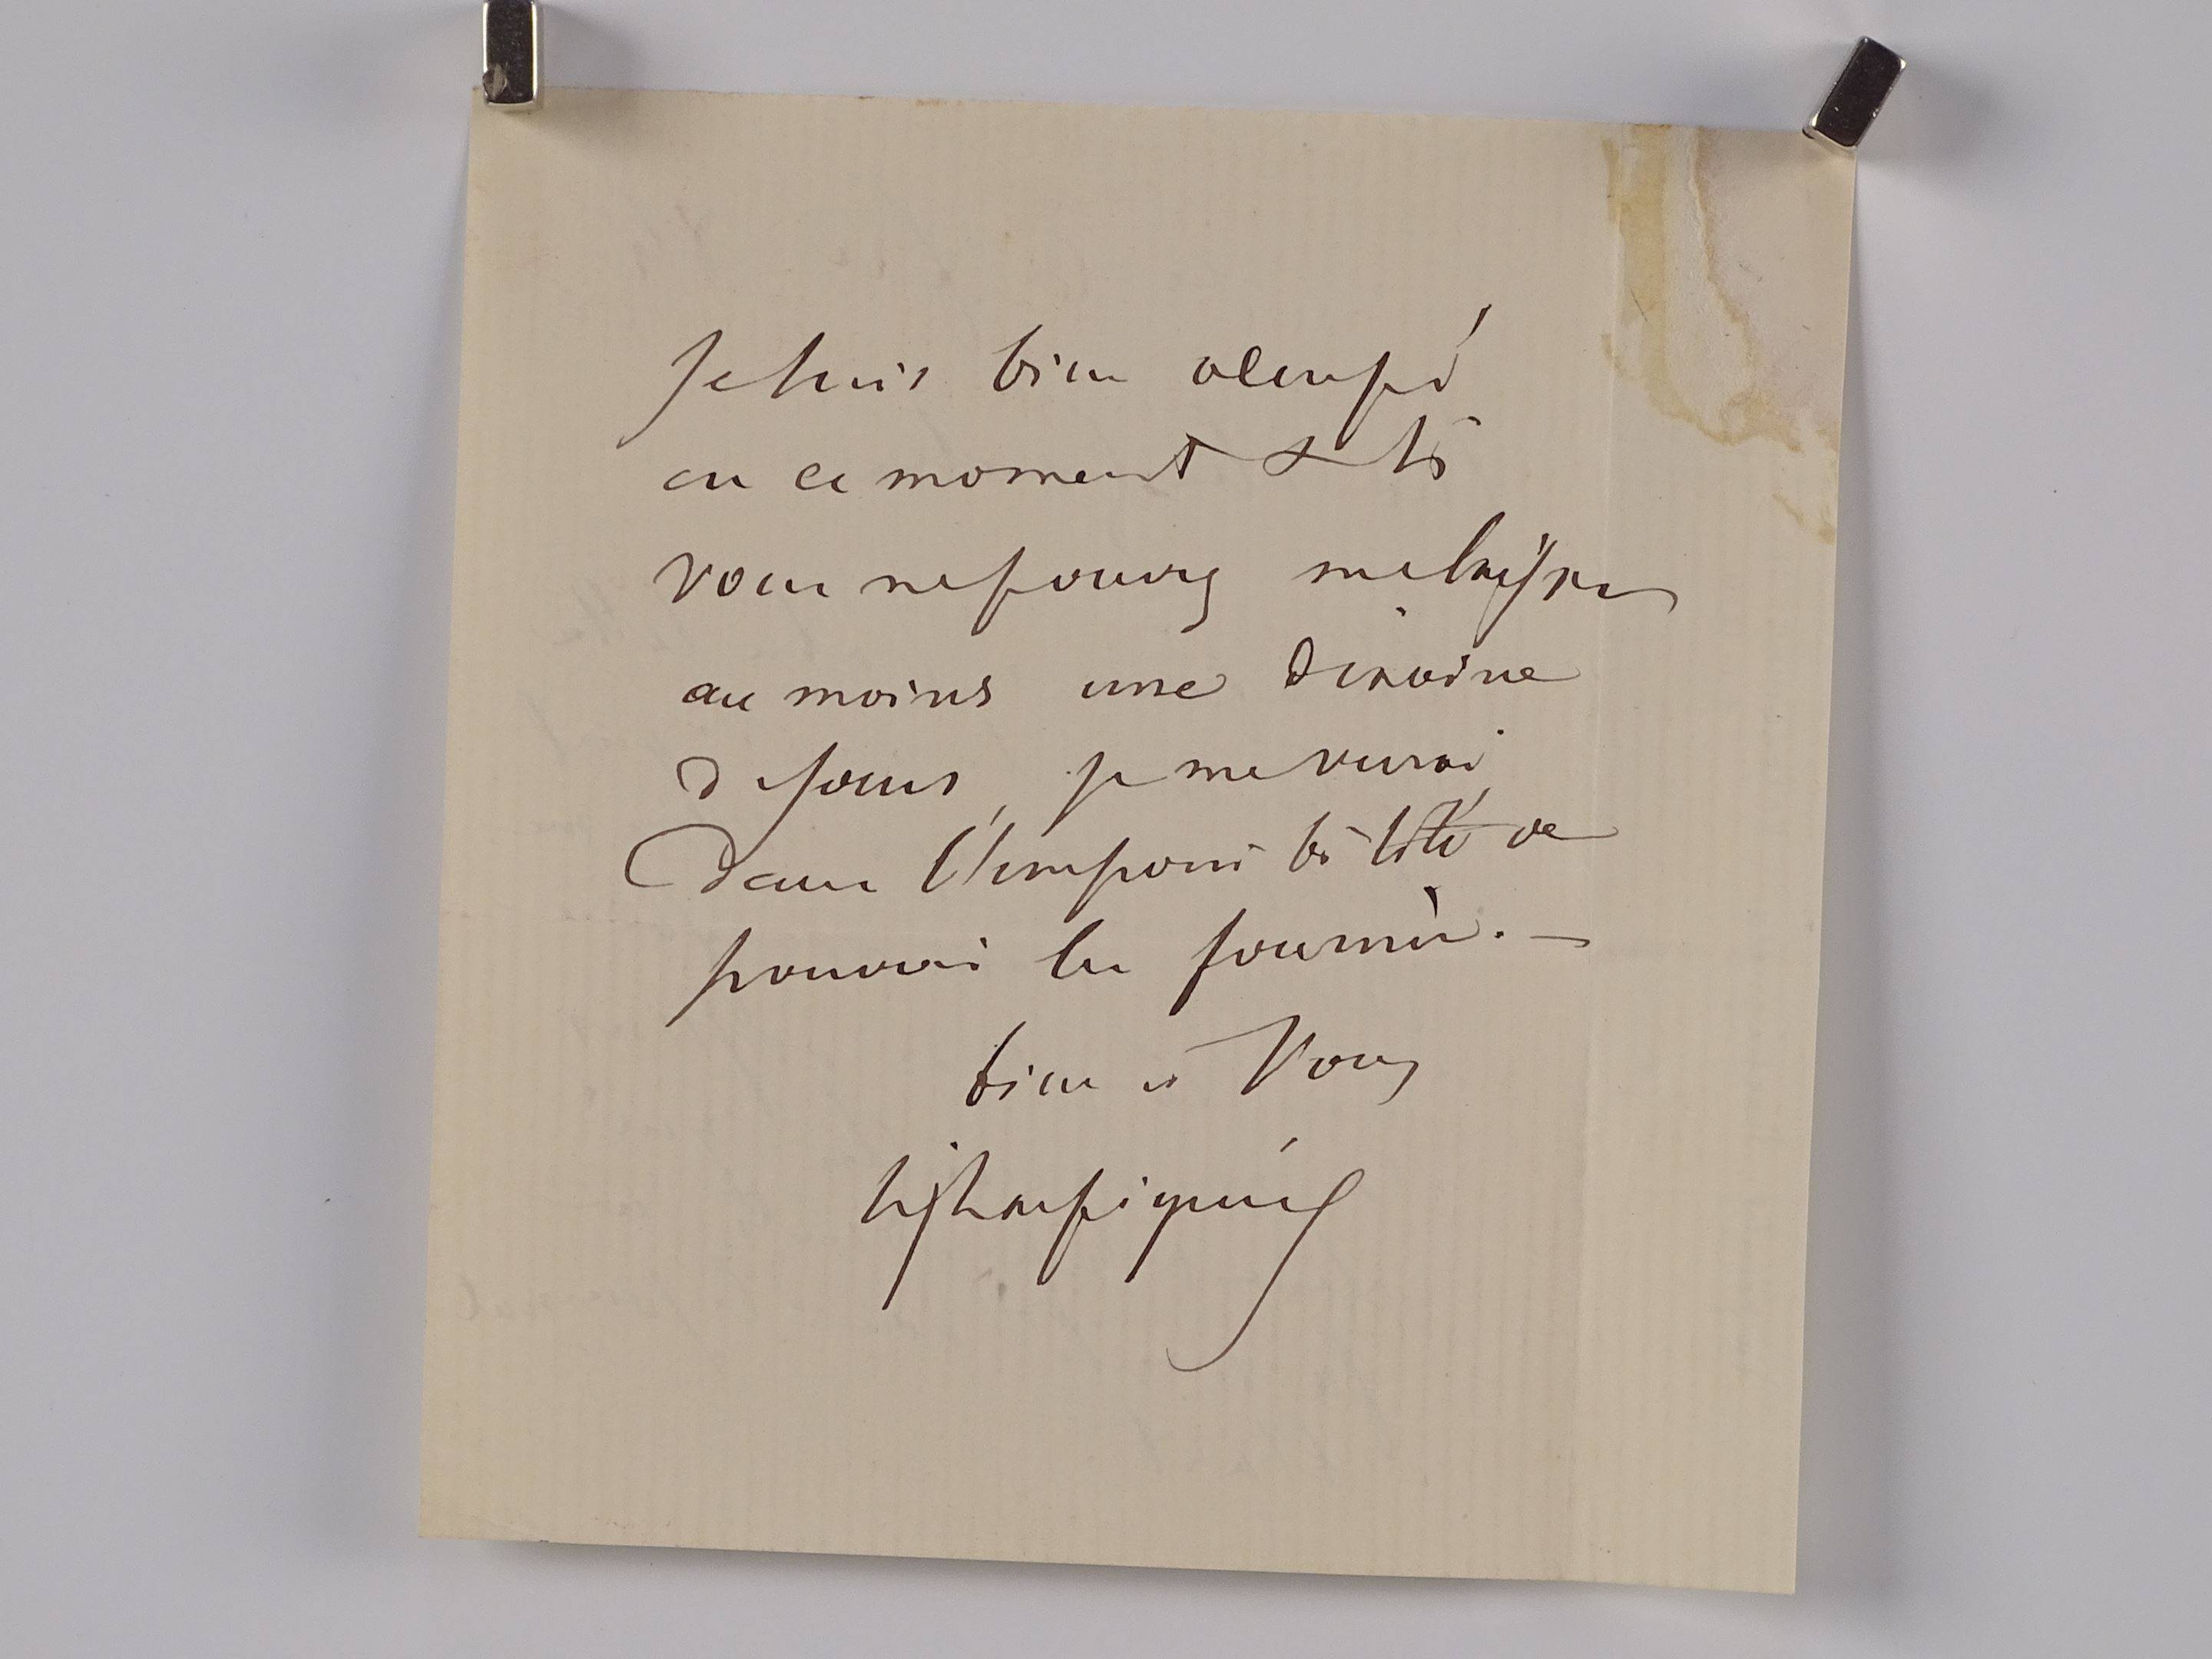 Je suis bien occupé
en ce moment & si
vous ne pouvez me laisser
au moins une dizaine
de jours, je me verrai
dans l'impossibilité de
pouvoir les fournir. —
bien à vous